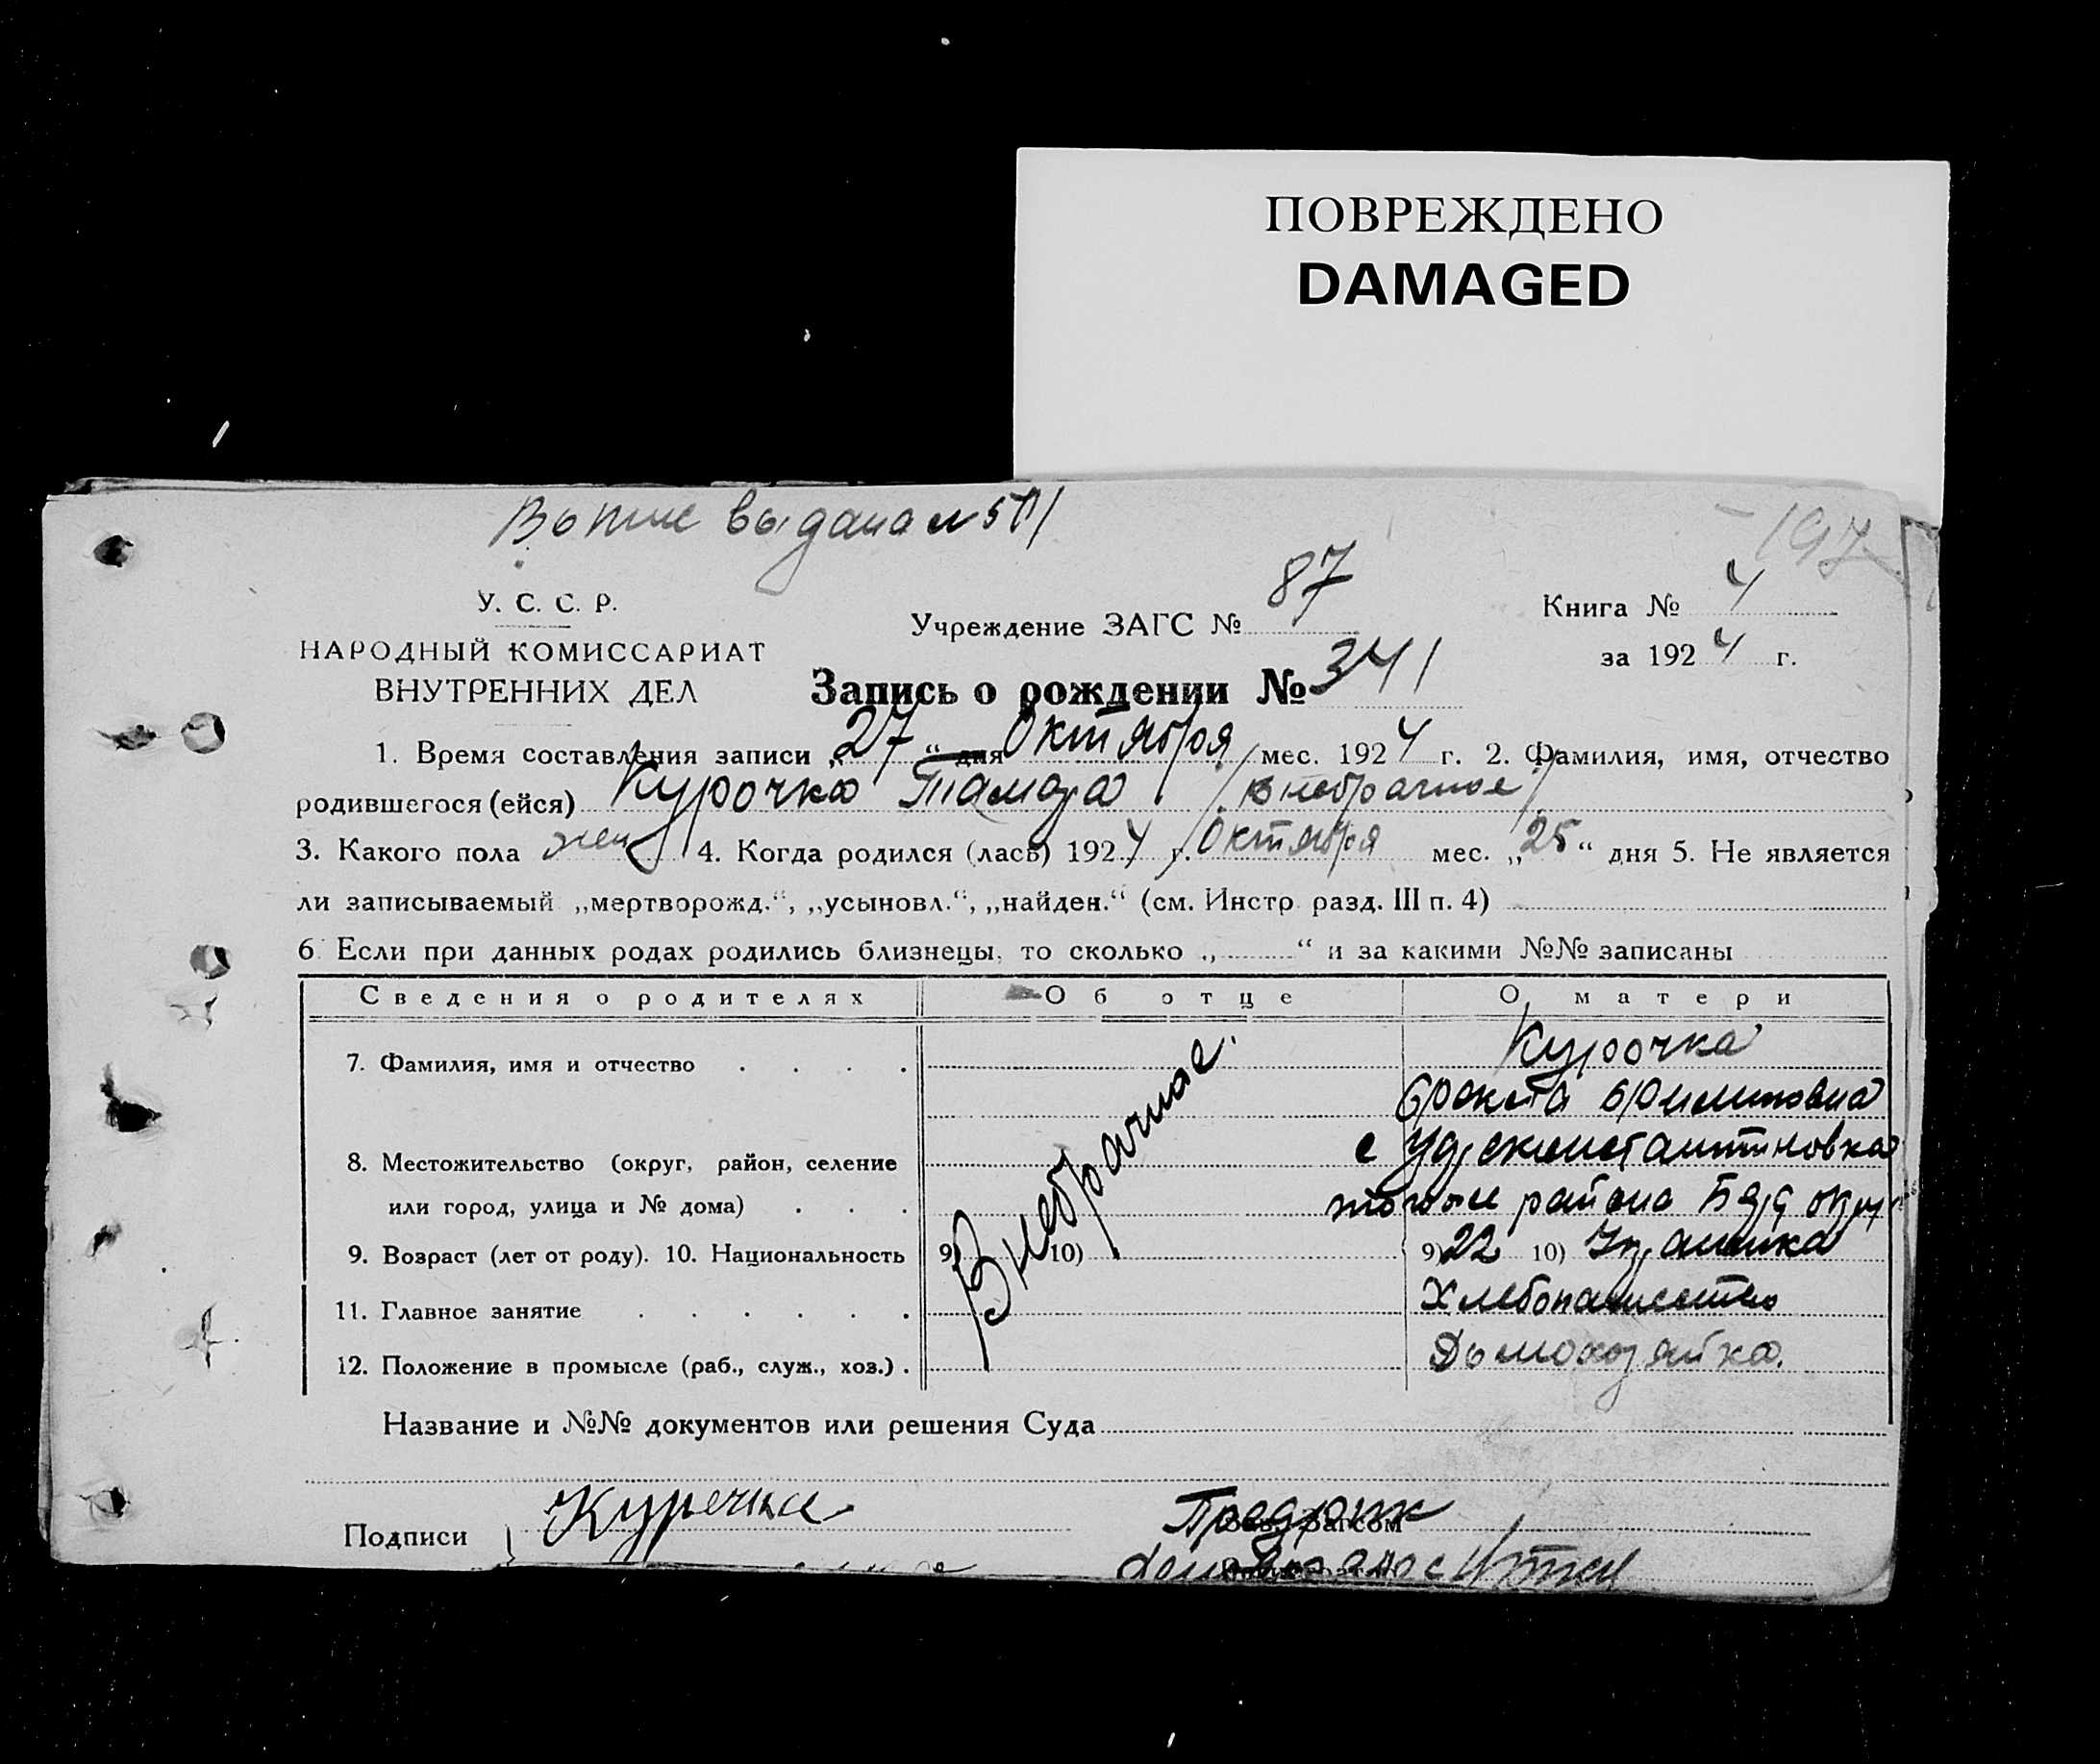 ПОВРЕЖДЕНО
DAMAGED
выдана №
197
У. С. С. Р.
НАРОДНЫЙ КОМИССАРИАТ
ВНУТРЕННИХ ДЕЛ
Учреждение ЗАГС № 87
Книга № 4
за 1924 г.
Запись о рождении № 341
1. Время составления записи „27“ дня Октября мес. 1924 г. 2. Фамилия, имя, отчество
родившегося (ейся) Курочка Тамара /внебрачное/
3. Какого пола жен 4. Когда родился (лась) 1924 г. Октября мес. „25“ дня 5. Не является
ли записываемый „мертворожд.“, „усыновл.“, „найден.“ (см. Инстр. разд. III п. 4)
6. Если при данных родах родились близнецы, то сколько „ “ и за какими №№ записаны
Сведения о родителях Об отце О матери
7. Фамилия, имя и отчество Внебрачное. Курочка
8. Местожительство (округ, район, селение с
или город, улица и № дома) района
9. Возраст (лет от роду). 10. Национальность 9) 10) 9) 22 10) Украинка
11. Главное занятие Хлебопашество
12. Положение в промысле (раб., служ., хоз.) Домохозяйка.
Название и №№ документов или решения Суда
Подписи Курочка